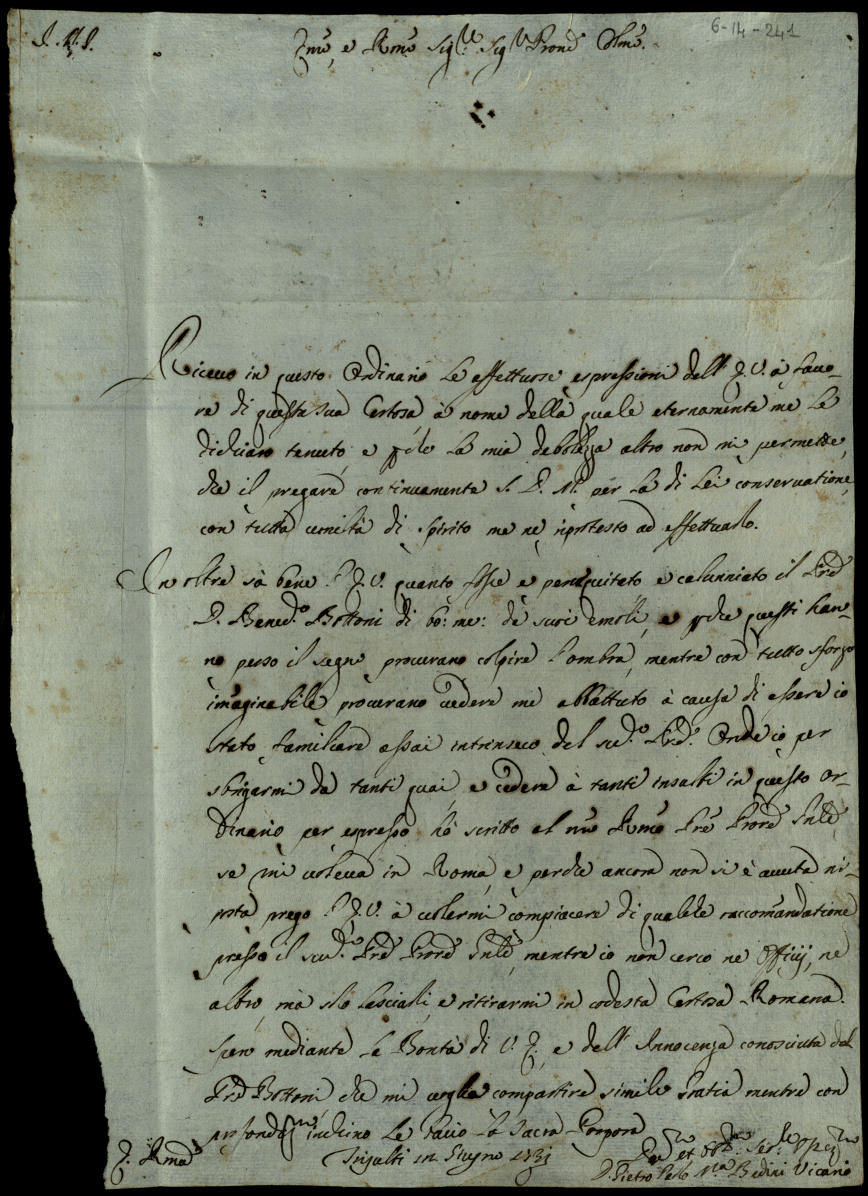 6-14-241
Emo, e Rmo Sigre Sigre Prone Clmo.
Ricevo in questo Ordinario le affettuose espressioni dell' E. V. à favo-
re di questa sua Certosa à nome della quale eternamente me le
dichiaro tenuto, e la mia debolezza altro non mi permette,
che il pregare continuamente S. D. M. per la di Lei conservatione,
con tutta umiltà di spirito me ne riprotesto ad effettuarlo.
In oltre sà bene l'E. V. quanto fosse e perseguitato e calunniato il Pre
D. Bened.o Bottoni di bo: me: de suoi emoli, e che questi han-
no perso il segno procurano colpire l'ombra, mentre con tutto sforzo
imaginabile procurano vedere me abbattuto à causa di essere io
stato familiare assai intrinseco del sud.o Pre. Onde io per
sbrigarmi da tanti guai, e cedere à tanti insulti in questo or-
dinario per espresso hò scritto al nro Rmo Pre Prore
se mi voleva in Roma, e perche ancora non si è avuta ri-
posta prego l'E. V. à volermi compiacere di qualche raccomandatione
presso il sud.o Pre Prore mentre io non cerco ne Officij, ne
altro, mà solo lasciarli, e ritirarmi in codesta Certosa Romana.
Spero mediante la Bontà di V. E., e dell' Innocenza conosciuta del
Pre Bottoni che mi voglia compartire simile Gratia mentre con
profondissmo inchino le bacio la Sacra Porpora
Trisulti 12 Giugno 1731
D. Pietro Paolo Ma Bedini Vicario